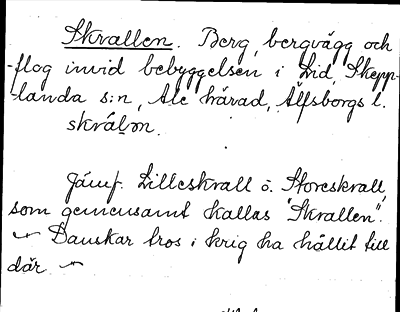 Skrallen. Berg, bergvägg och
-flog invid bebyggelsen i Lid, Skepp-
-landa s:n, Ale härad, Älfsborgs l.
skrálꞏn.
Jämf. Lilleskrall o. Storeskrall,
som gemensamt kallas "Skrallen".
~ Danskar tros i krig ha hållit till
där. ~